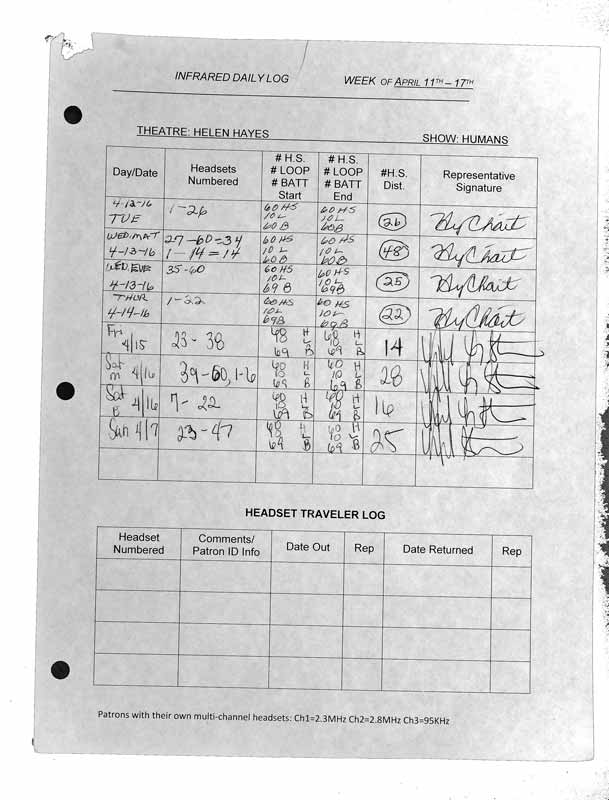 INFRARED DAILY LOG WEEK OF APRIL 11TH – 17TH
THEATRE: HELEN HAYES SHOW: HUMANS
Day/Date
Headsets
Numbered
# H.S.
# LOOP
# BATT
Start
# H.S.
# LOOP
# BATT
End
#H.S.
Dist.
Representative
Signature
4-12-16
TUE
1-26
60 HS
10 L
60 B
60 HS
10 L
60 B
26
WED. MAT
4-13-16
27-60=34
1-14=14
60 HS
10 L
60 B
60 HS
10 L
60 B
48
WED. EVE
4-13-16
35-60
60 HS
10 L
69 B
60 HS
10 L
69 B
25
THUR
4-14-16
1-22
60 HS
10 L
69 B
60 HS
10 L
69 B
22
Fri
4/15
23-38
H
L
69 B
H
L
69 B
14
Sat
m 4/16
39-60, 1-6
60 H
10 L
69 B
60 H
10 L
69 B
28
Sat
E 4/16
7-22
60 H
10 L
69 B
60 H
10 L
69 B
16
Sun 4/7
23-47
60 H
10 L
69 B
60 H
10 L
69 B
25
HEADSET TRAVELER LOG
Headset
Numbered
Comments/
Patron ID Info
Date Out
Rep
Date Returned
Rep
Patrons with their own multi-channel headsets: Ch1=2.3MHz Ch2=2.8MHz Ch3=95KHz